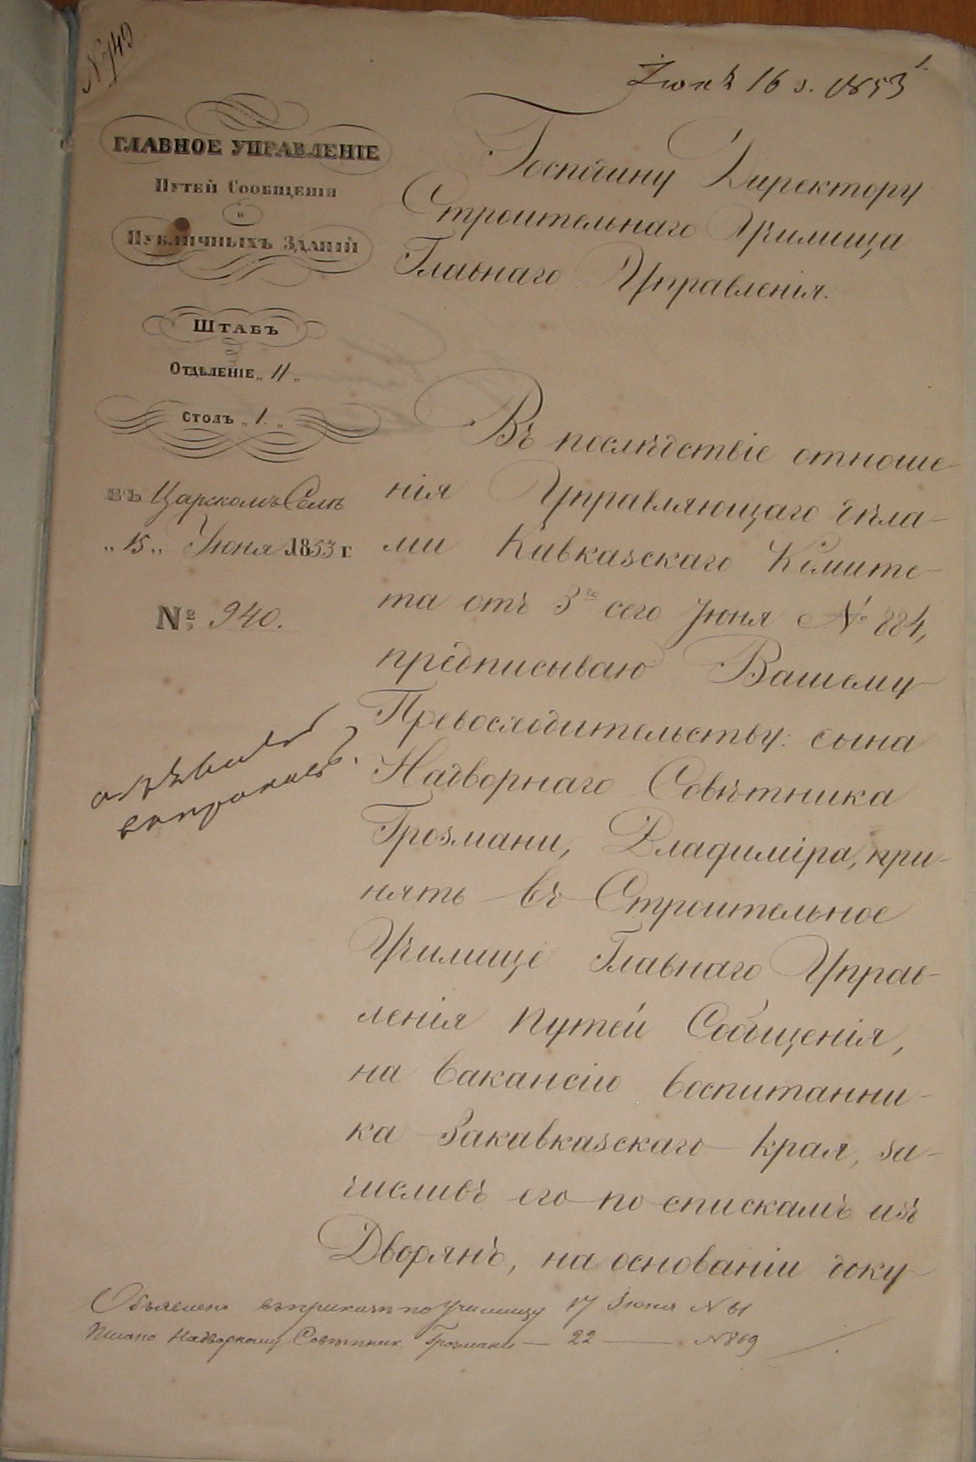 № 749
Іюнь 16 д. 1853
1.
ГЛАВНОЕ УПРАВЛЕНІЕ
ПУТЕЙ СООБЩЕНІЯ
и
ПУБЛИЧНЫХЪ ЗДАНІЙ
ШТАБЪ
ОТДѢЛЕНІЕ „ II „
СТОЛЪ „ 1. „
ВЪ Царскомъ Селѣ
„ 15 „ Іюня 1853 г.
№ 940.
Господину Директору
Строительнаго Училища
Главнаго Управленія.
Въ послѣдствіе отноше-
нія Управляющаго дѣла-
ми Кавказскаго Комите-
та отъ 3го сего Іюня № 884,
предписываю Вашему
Превосходительству: сына
Надворнаго Совѣтника
Грозмани, Владиміра, при-
нять въ Строительное
Училище Главнаго Управ-
ленія Путей Сообщенія,
на вакансію воспитанни-
ка Закавказскаго края, за-
числивъ его по спискамъ изъ
Дворянъ, на основаніи доку-
Объявлено въ приказѣ по Училищу 17 Іюня № 61
Писано Надворному Совѣтнику Грозмани — 22 — № 809